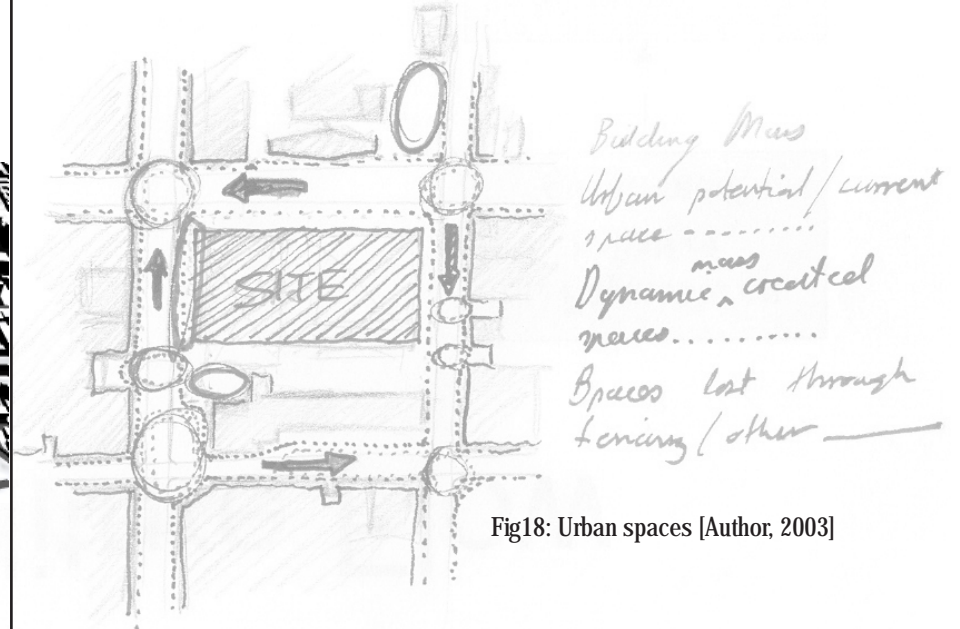 SITE
Building Mass
Urban potential / current
space ---------
mass
Dynamic ‸ created
spaces..........
Spaces lost through
fencing / other ———
Fig18: Urban spaces [Author, 2003]